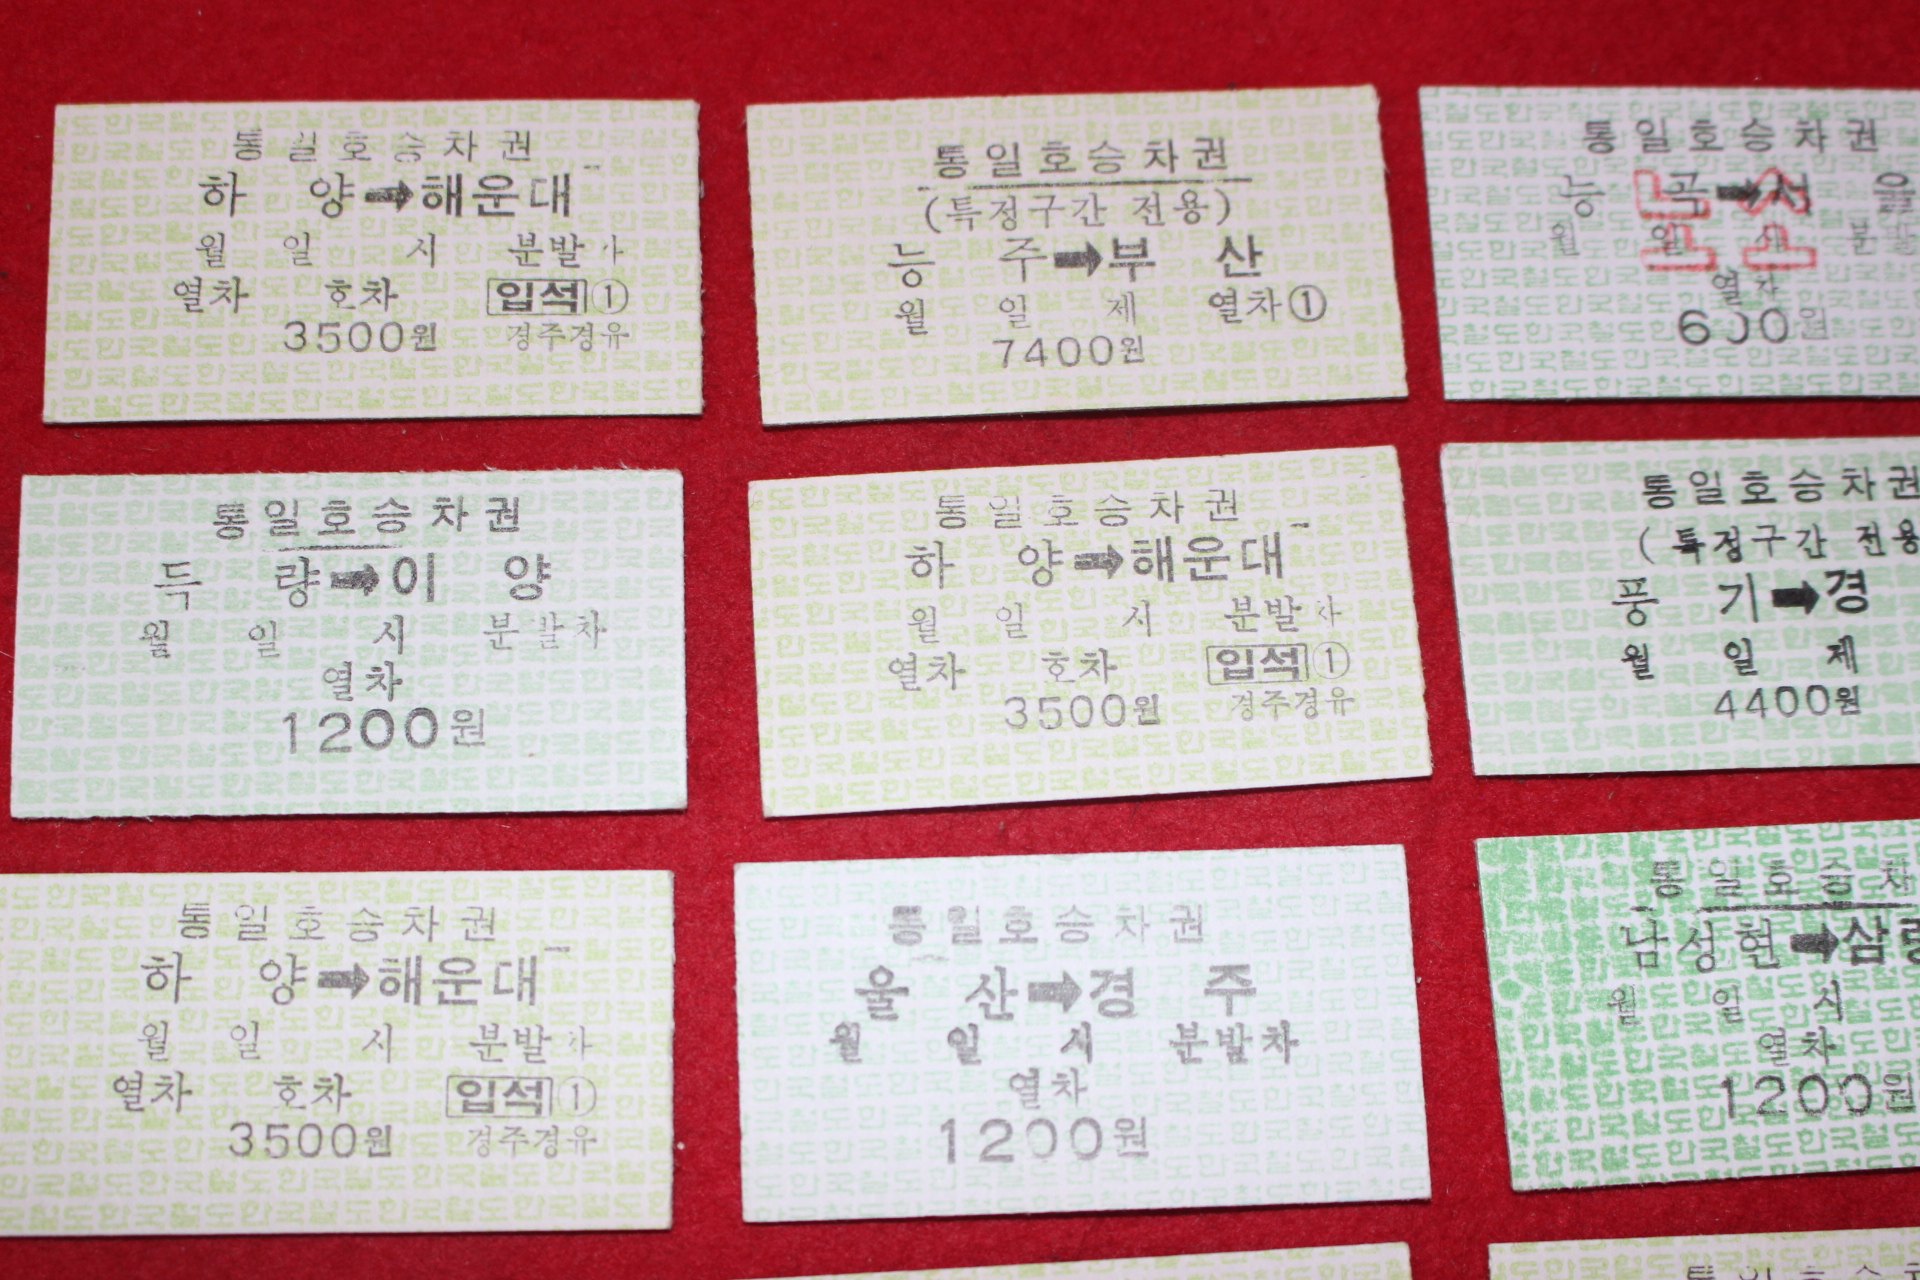 통일호승차권
하 양➡해운대
월 일 시 분발차
열차 호차 입석①
3500원 경주경유
통일호승차권
(특정구간 전용)
능 주➡부 산
월 일 제 열차①
7400원
통일호승차권
능 곡➡서 울
월 일 시 분발
열차
600원
통일호승차권
득 량➡이 양
월 일 시 분발차
열차
1200원
통일호승차권
하 양➡해운대
월 일 시 분발차
열차 호차 입석①
3500원 경주경유
통일호승차권
(특정구간 전용
풍 기➡경
월 일 제
4400원
통일호승차권
하 양➡해운대
월 일 시 분발차
열차 호차 입석①
3500원 경주경유
통일호승차권
울 산➡경 주
월 일 시 분발차
열차
1200원
통일호승차
남성현➡삼랑
월 일 시
열차
1200원
통일호승차